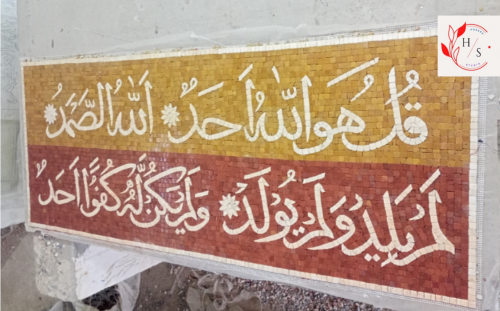 قُلْ هُوَ اللّٰهُ أَحَدٌ ۞ اَللّٰهُ الصَّمَدُ
لَمْ يَلِدْ وَلَمْ يُولَدْ ۞ وَلَمْ يَكُنْ لَهُ كُفُوًا أَحَدٌ
H/S